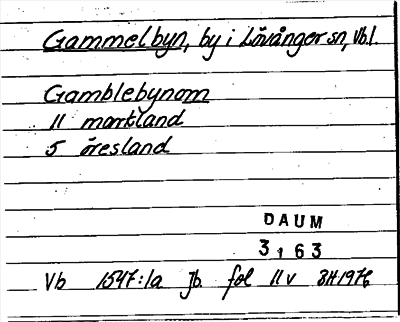 Gammelbyn, by i Lövånger sn, Vb.l.
Gamblebynom
11 markland
5 öresland
DAUM
3163
Vb 1547:1a Jb. fol 11 v BH1976